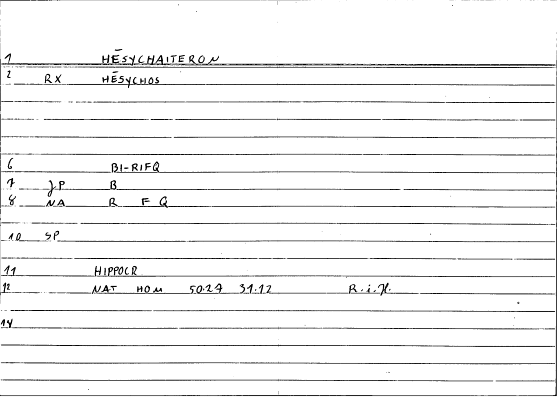 1 HĒSYCHAITERON
2 RX HĒSYCHOS
6 BI-RIFQ
7 JP B
8 NA R F Q
10 SP
11 HIPPOCR
12 NAT HOM 50.27 31.12 R.i.H.
14